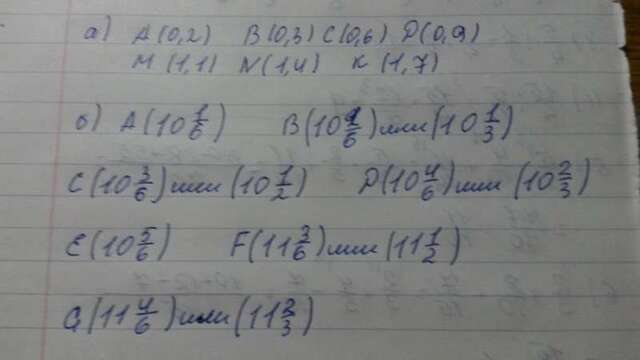 а) A(0,2) B(0,3) C(0,6) D(0,9)
M(1,1) N(1,4) K(1,7)
б) A(10 1/6) B(10 2/6) или (10 1/3)
C(10 3/6) или (10 1/2) D(10 4/6) или (10 2/3)
E(10 5/6) F(11 3/6) или (11 1/2)
G(11 4/6) или (11 2/3)